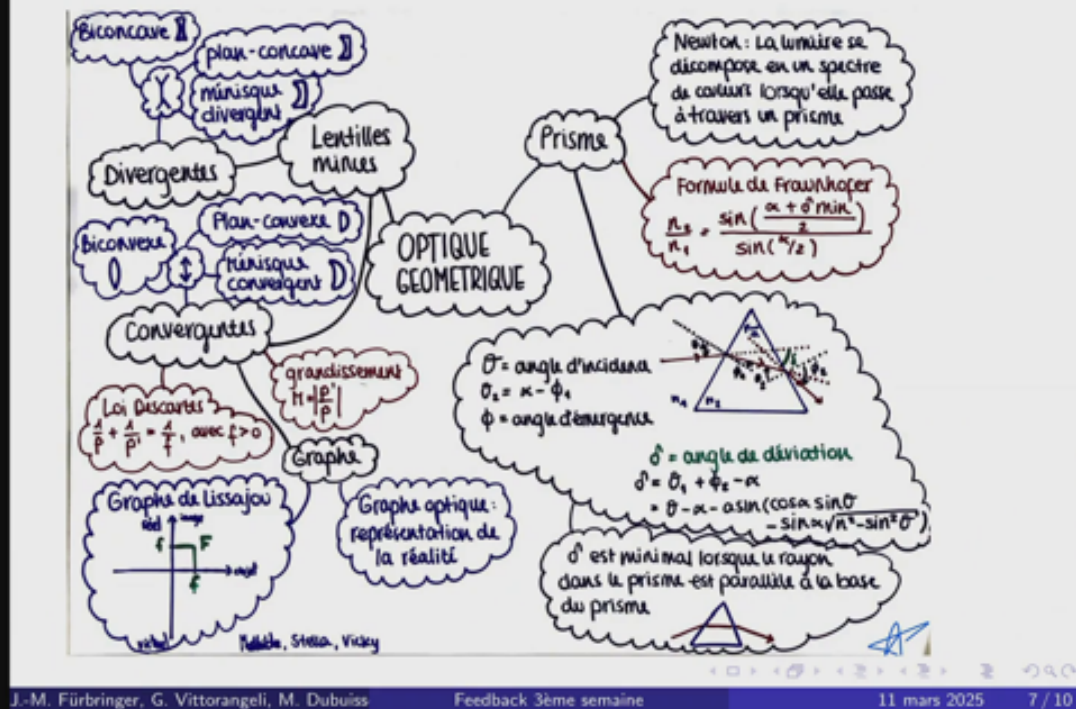 Biconcave
plan-concave
ménisque
divergent
Divergentes
Lentilles
minces
Plan-convexe
Biconvexe
Ménisque
convergent
Convergentes
OPTIQUE
GEOMETRIQUE
Loi Descartes
1/p + 1/p' = 1/f, avec f>0
grandissement
M = |p'/p|
Graphe
Graphe de Lissajou
réel
image
f
F
f
virtuel
Graphe optique:
représentation de
la réalité
Stella, Vicky
Prisme
Newton: La lumière se
décompose en un spectre
de couleurs lorsqu'elle passe
à travers un prisme
Formule de Fraunhofer
n₂/n₁ = sin((α + δmin)/2) / sin(α/2)
θ = angle d'incidence
θ₂ = α - ϕ₁
ϕ = angle d'émergence
n₁
n₂
δ = angle de déviation
δ = θ₁ + ϕ₂ - α
= θ - α - asin(cosα sinθ
- sinα√n² - sin²θ)
δ est minimal lorsque le rayon
dans le prisme est parallèle à la base
du prisme
J.-M. Fürbringer, G. Vittorangeli, M. Dubuiss
Feedback 3ème semaine
11 mars 2025
7 / 10